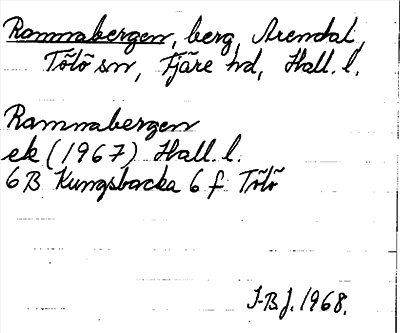 Rammabergen, berg, Arendal,
Tölö sn, Fjäre hd, Hall. l.
Rammabergen
ek (1967) Hall. l.
6B Kungsbacka 6 f Tölö
J-B.J. 1968.